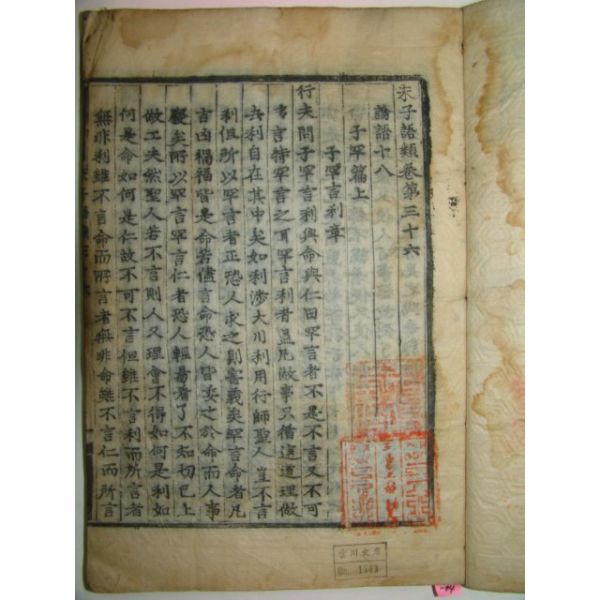 朱子語類卷第三十六
論語十八
子罕篇上
子罕言利章
行夫問子罕言利與命與仁曰罕言者不是不言又不可
多言特罕言之耳罕言利者盖凡做事只循這道理做
去利自在其中矣如利涉大川利用行師聖人豈不言
利但所以罕言者正恐人求之則害義矣罕言命者凡
吉凶禍福皆是命若儘言命恐人皆委之於命而人事
廢矣所以罕言罕言仁者恐人輕易看了不知切己上
做工夫然聖人若不言則人又理會不得如何是利如
何是命如何是仁故不可不言但雖不言利而所言者
無非利雖不言命而所言者無非命雖不言仁而所言